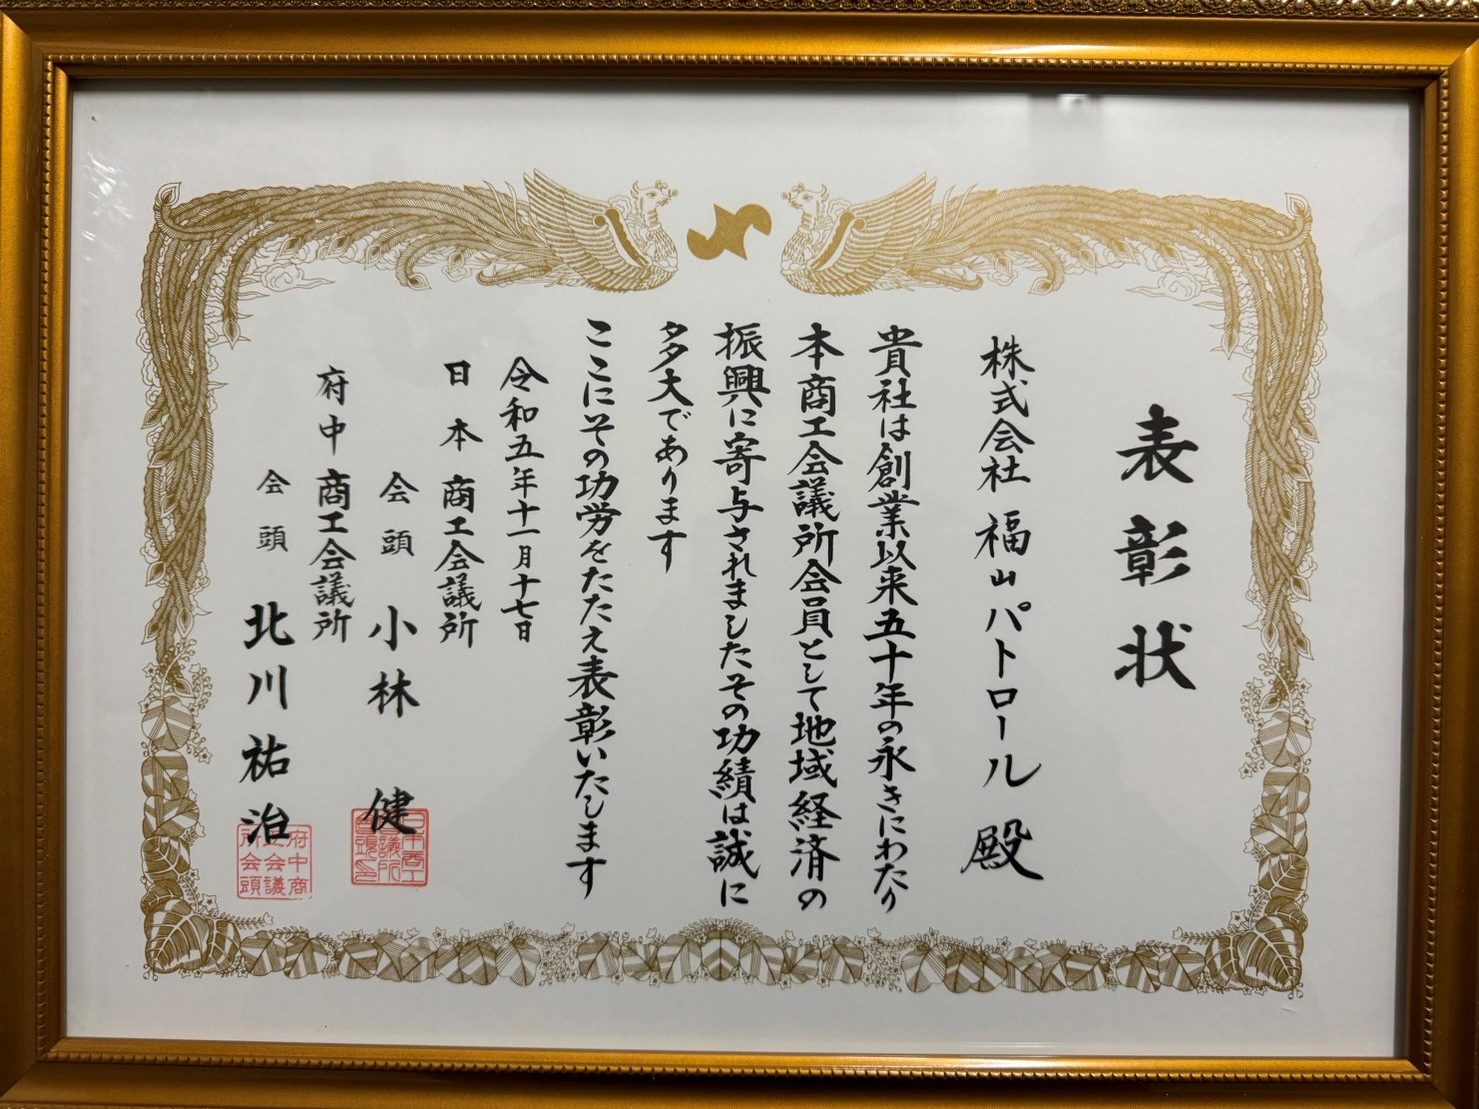 表彰状
株式会社 福山パトロール 殿
貴社は創業以来五十年の永きにわたり
本商工会議所会員として地域経済の
振興に寄与されましたその功績は誠に
多大であります
ここにその功労をたたえ表彰いたします
令和五年十一月十七日
日本商工会議所
会頭 小林 健
府中商工会議所
会頭 北川祐治
日本商工会議所会頭之印
府中商工会議所会頭